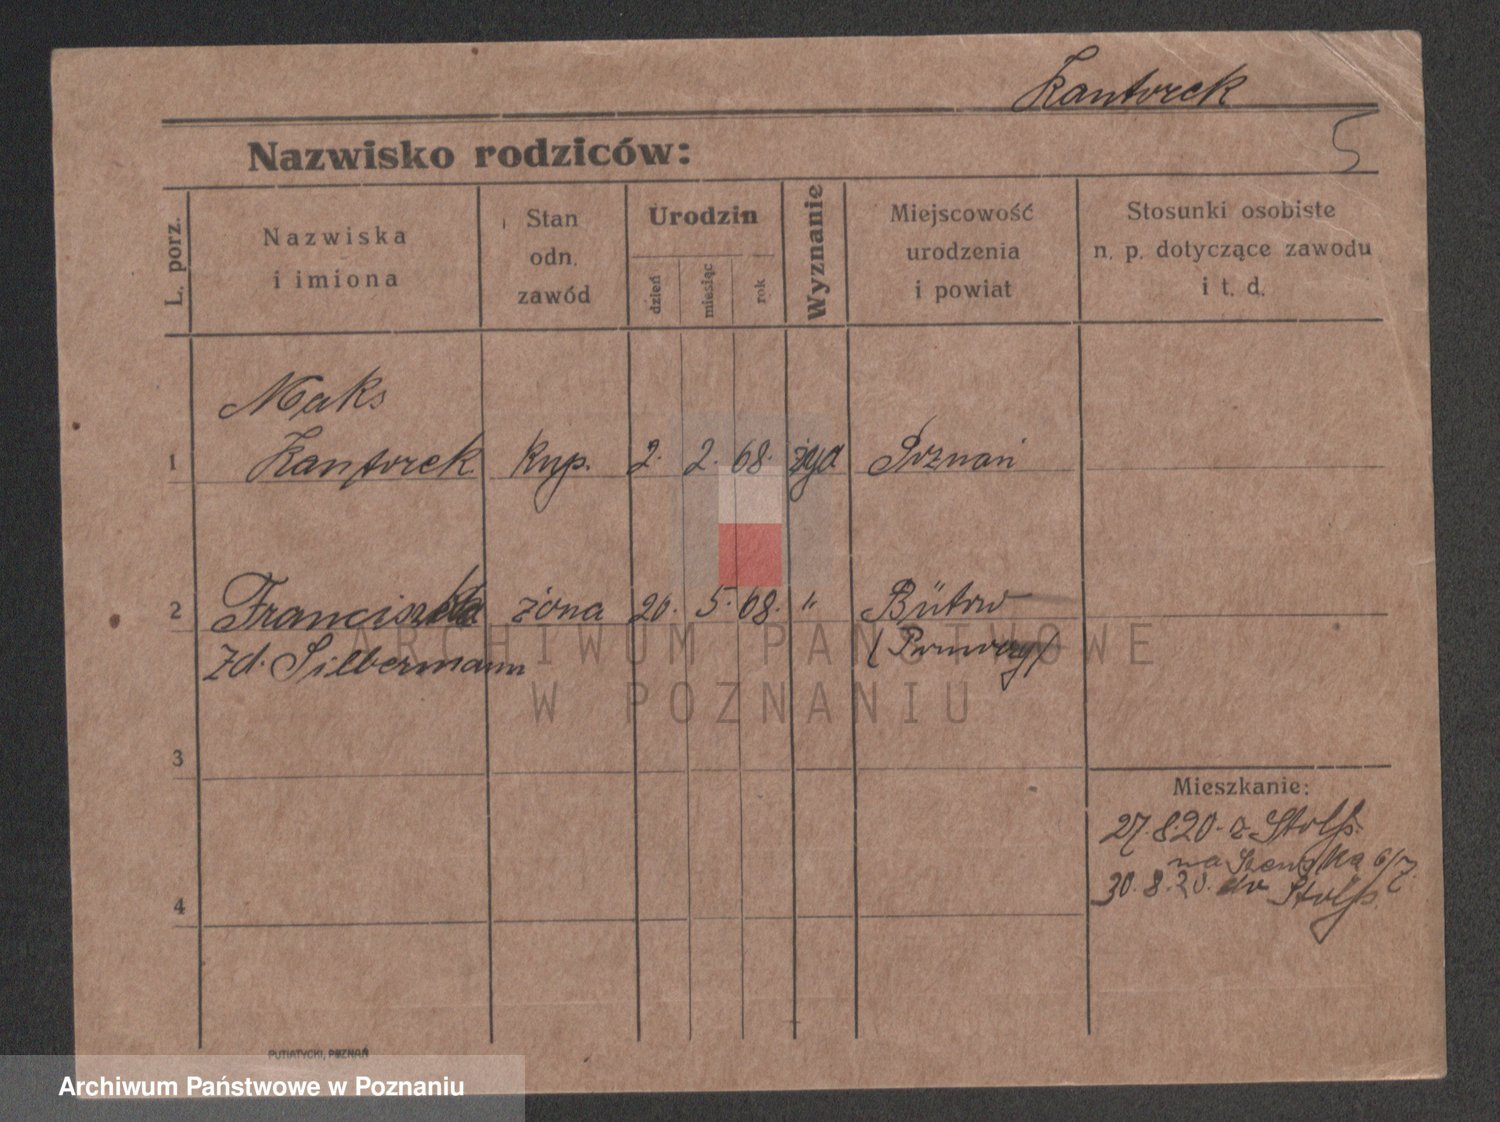 Kantorek
Nazwisko rodziców:
L. porz.
Nazwiska
i imiona
Stan
odn.
zawód
Urodzin
dzień
miesiąc
rok
Wyznanie
Miejscowość
urodzenia
i powiat
Stosunki osobiste
n. p. dotyczące zawodu
i t. d.
Maks
1 Kantorek kup. 2. 2. 68. żyd Poznań
2 Franciszka żona 26. 5. 68. " Bütow
zd. Silbermann (Pomorze)
ARCHIWUM PAŃSTWOWE
W POZNANIU
3
Mieszkanie:
27.8.20. z Stolp.
na 6/7.
30.8.20. do Stolp.
4
PUTIATYCKI, POZNAŃ
Archiwum Państwowe w Poznaniu